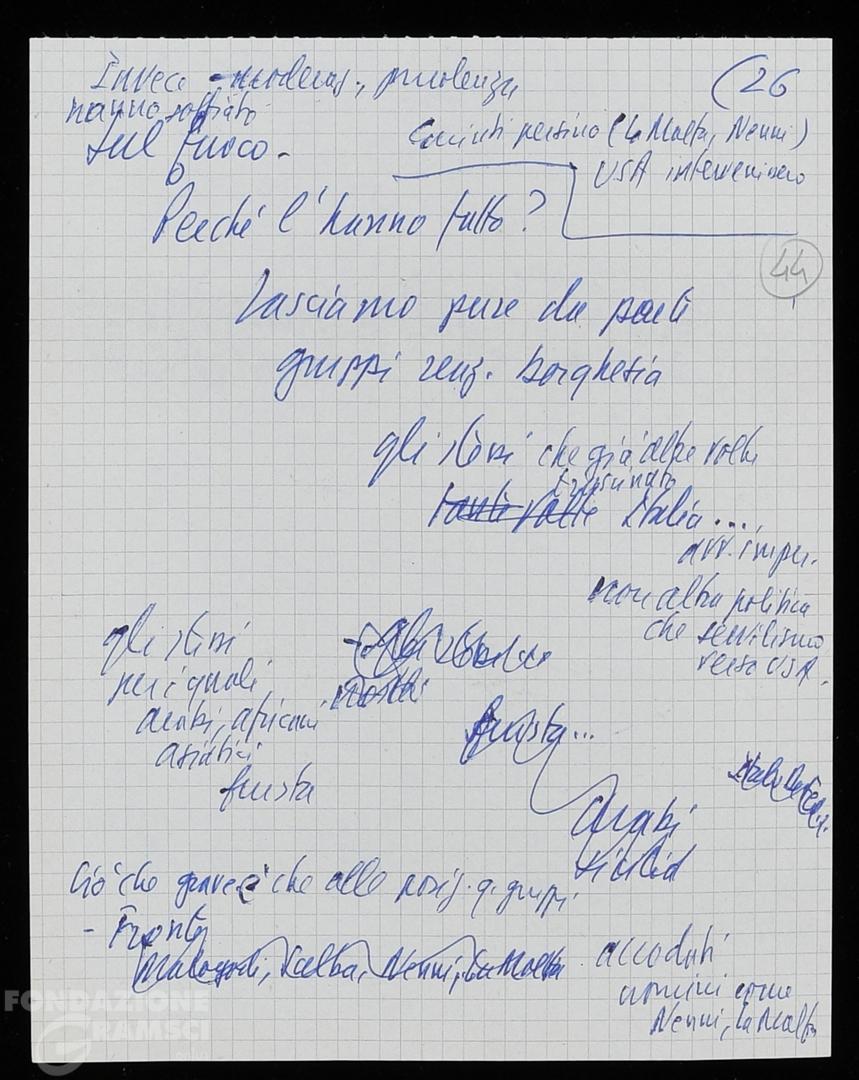 Invece - moderaz., prudenza
(26
hanno soffiato
sul fuoco -
persino (La Malfa, Nenni)
USA intervenissero
Perché l'hanno fatto?
44
Lasciamo pure da parte
gruppi reaz. borghesia
gli stessi che già altre volte
trascinato
tante volte Italia...
avv. imper.
non altra politica
che servilismo
verso USA.
gli stessi
per i quali
arabi, africani
asiatici
frusta
nostri
frusta...
Arabi
Sicilia
Ciò che grave è che alle posiz. q. gruppi
- Fronte
Malagodi, Nenni, La Malfa
accodati
uomini come
Nenni, La Malfa
FONDAZIONE
GRAMSCI